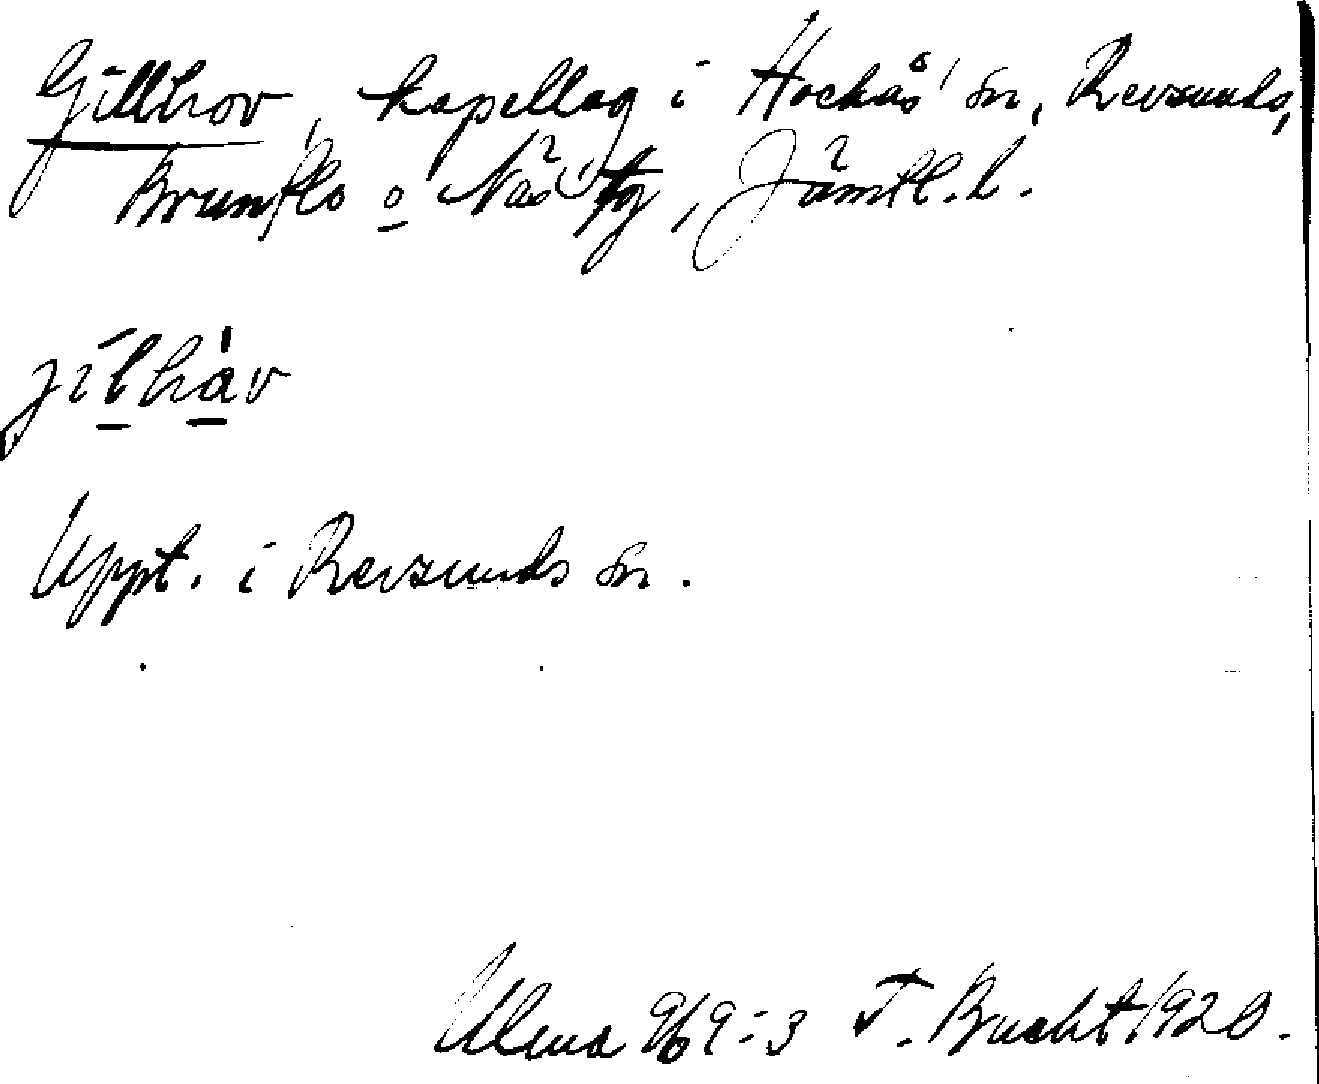 Gillhov, kapellag i Hackås' sn, Revsunds,
Brunflo o Näs tg, Jämtl. l.
jílhàv
Uppt. i Revsunds sn.
Ulma 969:3 T. Bucht 1920.